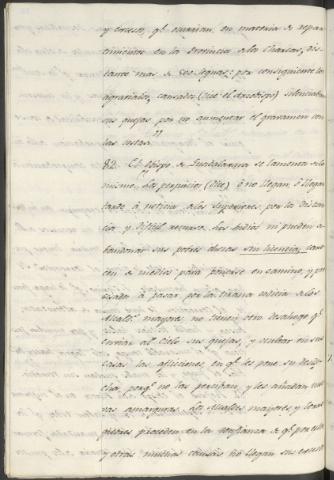 y excesos, qᵉ. ocurrian en materia de repar-
timientos en la Provincia de los Charcas, dis-
tante mas de 300 leguas; por consiguiente los
agraviados, cansados (dice el Arzobispo) silenciaban
sus quejas por no aumentar el gravamen con
las costas."
82. El Obispo de Guadalaxara se lamenta de lo
mismo. Los perjuicios (dice) ó no llegan, ó llegan
tarde á noticia de los Superiores, por la distan-
cia, y dificil recurso. Los Indios ni pueden a-
bandonar sus pobres chozas sin licencia, care-
cen de medios para ponerse en camino, y
á pasar por la tirana codicia de los
Alcaldˢ. mayores no tienen otro desahogo qᵉ.
enviar al Cielo sus quejas, y ocultar en sus
casas las aflicciones, en qᵉ. les pone su desdi-
cha, porqᵉ. no las perciban, y les añadan nue-
vas amarguras. Los Alcaldes mayores y
proceden en la confianza de qᵉ. por esta
y otras muchas causas no llegan sus